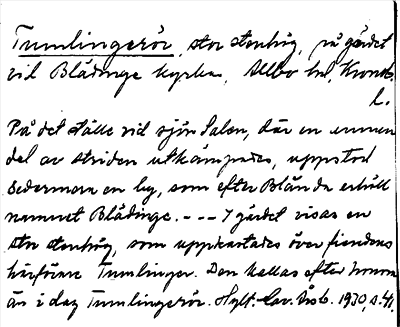 Tumlingerör, stor stenhög, på gärdet
vid Blädinge kyrka, Allbo hd, Kronob.
l.
På det ställe vid sjön Salen, där en annan
del av striden utkämpades, uppstod
sedermera en by, som efter Blända erhöll
namnet Blädinge. --- I gärdet visas en
stor stenhög, som uppkastades över fiendens
härförare Tumlinger. Den kallas efter honom
än i dag Tumlingerör. Hylt. Cav. Årsb. 1930, s. 41.